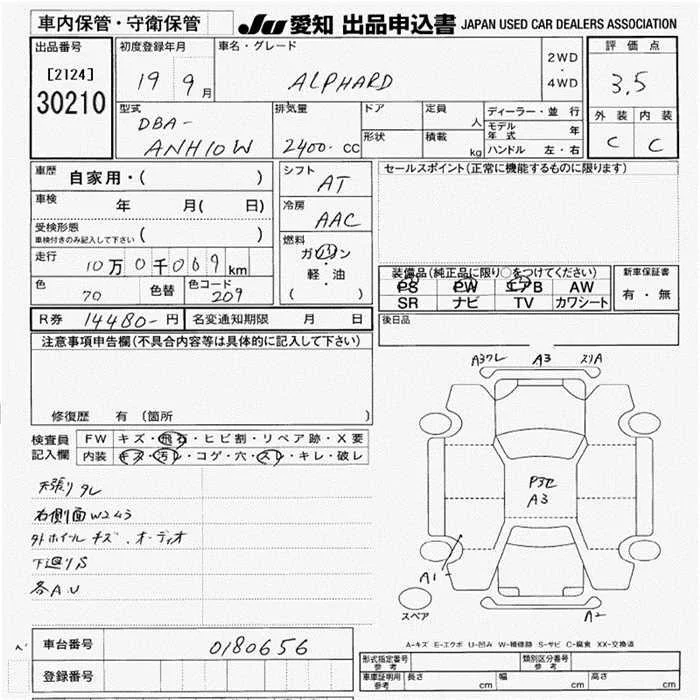 車内保管・守衛保管 JU 愛知 出品申込書 JAPAN USED CAR DEALERS ASSOCIATION
出品番号 初度登録年月 車名・グレード 2WD ・ 4WD 評価点
[2124] 30210 19 9月 ALPHARD 3.5
型式 排気量 ドア 定員 人 ディーラー・並行 外装 内装
DBA- モデル年式 年
ANH10W 2400-cc 形状 積載 kg ハンドル 左・右 C C
車歴 自家用・( ) シフト AT セールスポイント(正常に機能するものに限ります)
車検 年 月( 日) 冷房 AAC
受検形態 車検付きのみ記入して下さい ( )
走行 10万0千069km 燃料 ガソリン ・ 軽・油 ( )
装備品(純正品に限り○をつけてください) 新車保証書
PS PW エアB AW 有・無
色 70 色替 色コード 209 SR ナビ TV カワシート
R券 14480-円 名変通知期限 月 日 後日品
注意事項申告欄(不具合内容等は具体的に記入して下さい)
修復歴 有 (箇所 )
検査員記入欄 FW キズ・飛石・ヒビ割・リペア跡・X要
内装 キズ・汚レ・コゲ・穴・スレ・キレ・破レ
天張りタレ
右側面W2 43
外ホイールキズ.オーディオ
下廻りS
各A.U
A3ワレ A3 スリA
A3
A1
A2
スペア
A-キズ E-エクボ U-凹み W-補修跡 S-サビ C-腐食 XX-交換済
車台番号 0180656
登録番号
形式指定番号 参考 類別区分番号 参考
車庫証明用 参考 長さ cm 幅 cm 高さ cm